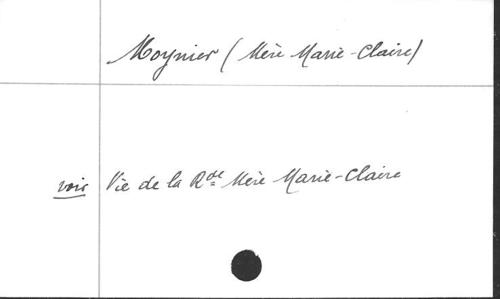 Moynier (Mère Marie-Claire)
voir Vie de la Rde Mère Marie-Claire